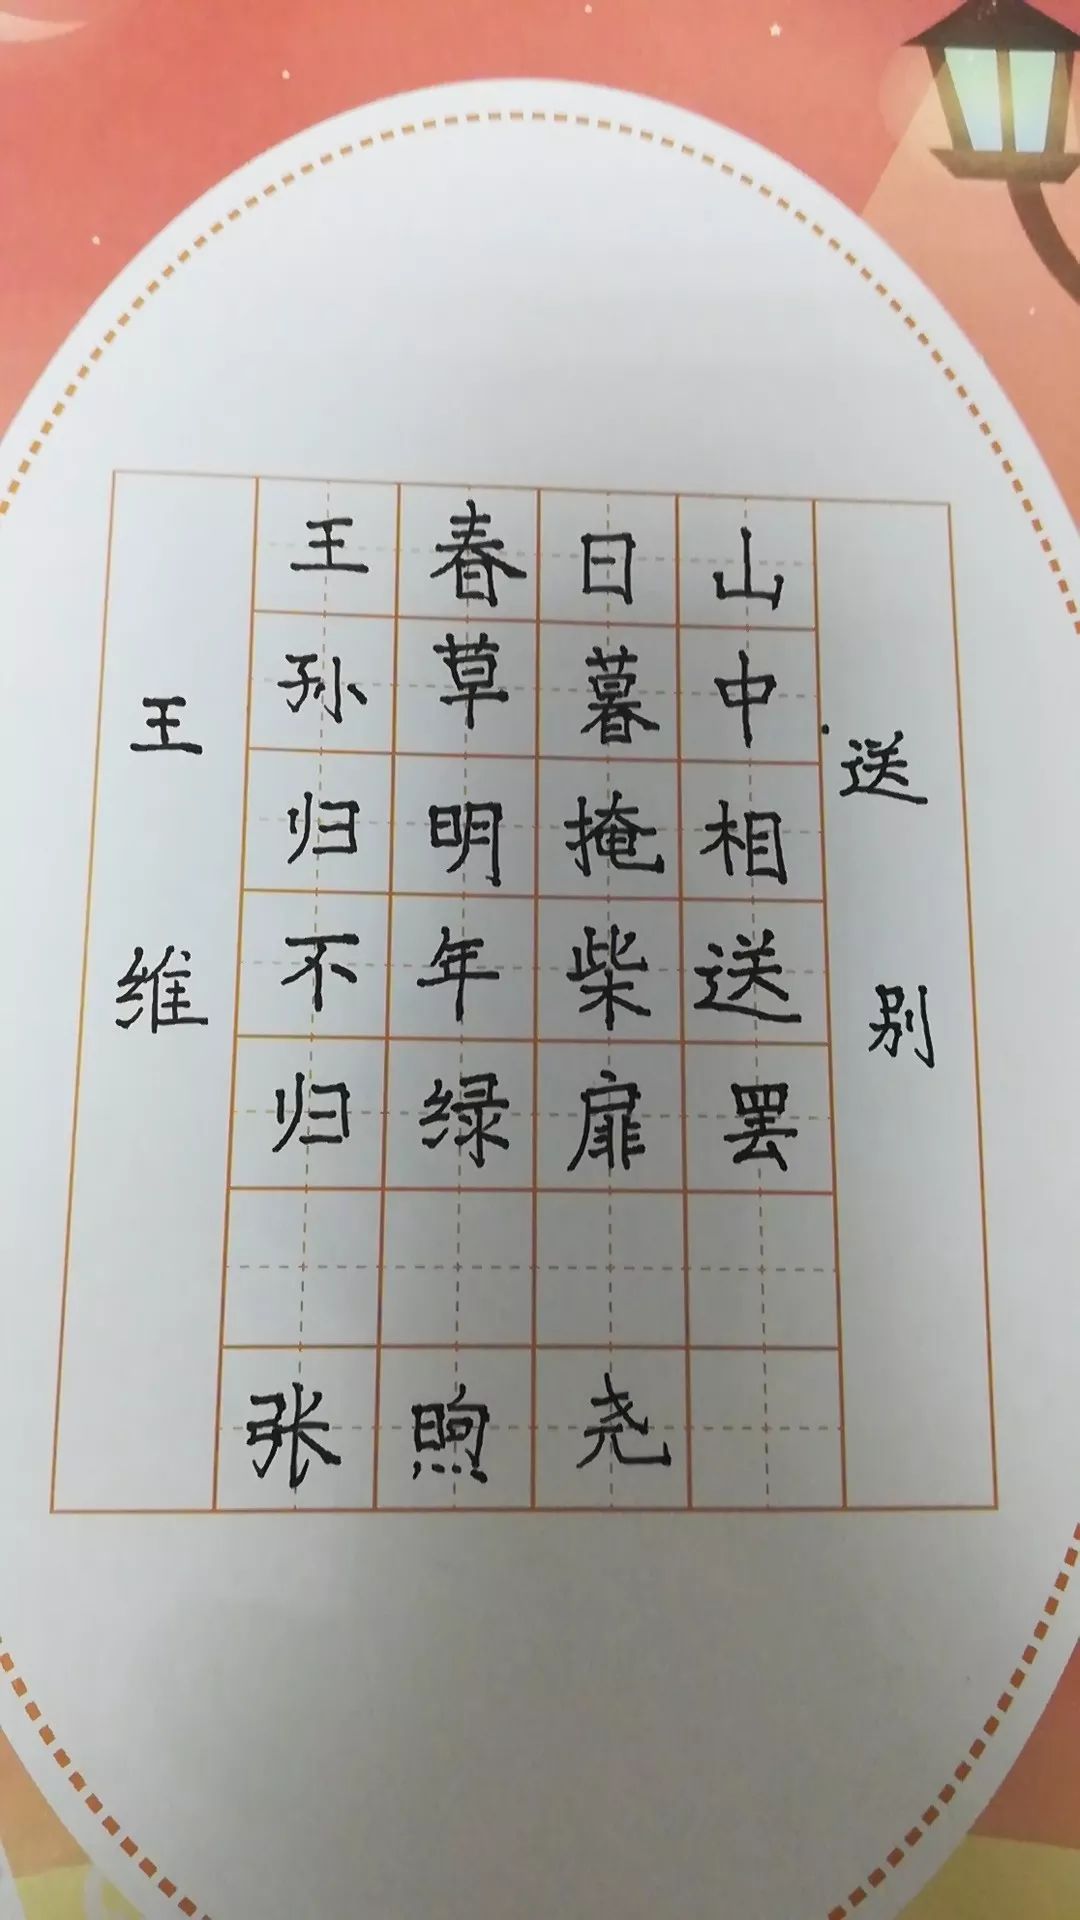 送别
山中相送罢
日暮掩柴扉
春草明年绿
王孙归不归
王维
张煦尧